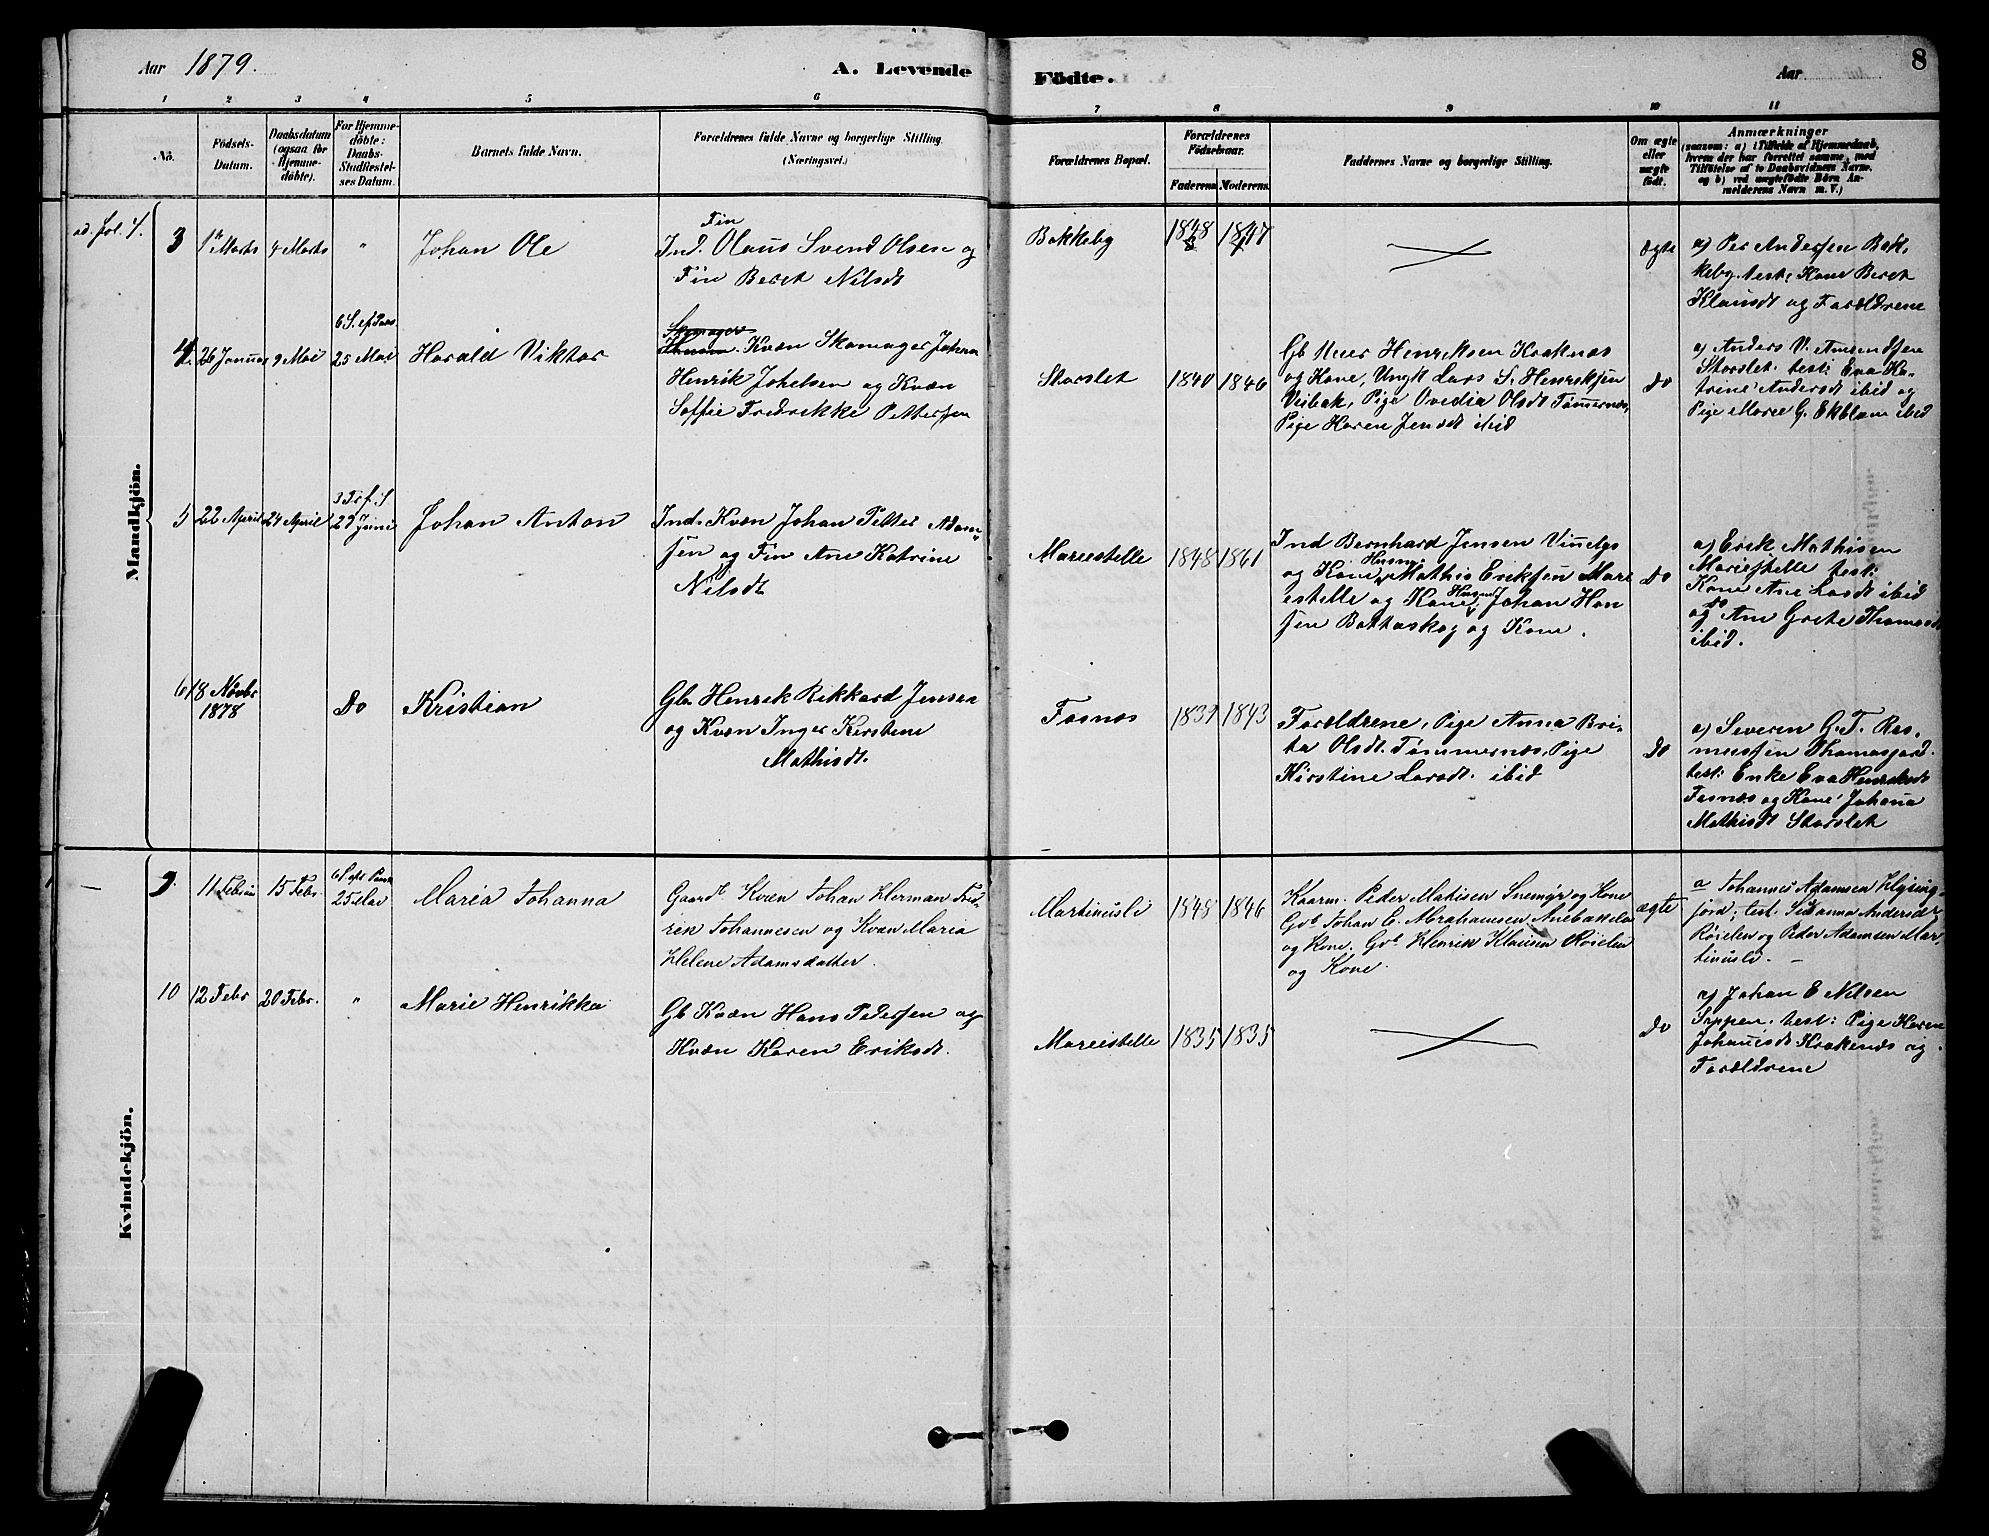 Aar 1879. A. Levende Födte. Aar 8
1 2 3 4 5 6 7 8 9 10 11
No.
Födsels-
Datum.
Daabsdatum
(ogsaa for
Hjemme-
döbte).
For Hjemme-
döbte:
Daabs-
Stadfæstel-
ses Datum.
Barnets fulde Navn.
Forældrenes fulde Navne og borgerlige Stilling.
(Næringsvei.)
Forældrenes Bopæl.
Forældrenes
Födselsaar.
Faderens. Moderens.
Faddernes Navne og borgerlige Stilling.
Om ægte
eller
uægte
födt.
Anmærkninger
(saasom: a) i Tilfælde af Hjemmedaab,
hvem der har forrettet samme, med
Tilföielse af to Daabsvidners Navne.
og b) ved uægtefödte Börn An-
melderens Navn m. V.)
Mandkjön.
ad. fol. 4.
3 1ste Marts 4 Marts " Johan Ole
Fin
Ind. Olaus Svend Olsen og
Fin Beret Nilsdt
Bakkeby 1848 1847 ægte
a) Per Andersen Bak-
keby test: Kone Beret
Klausdt og Forældrene
4. 26 Januar 9 Mai
6 S. ef. Paas.
25 Mai
Harald Viktor
Skomager
Kvæn Skomager Johan
Henrik Johelsen og Kvæn
Soffie Fredrikke Pettersen
Storslet 1840 1846
Gb Henriksen Kraknæs
og Kone, Ungk Lars S. Henriksen
Veibak, Pige Ovedia Olsdt Tømernæs,
Pige Karen Jensdt ibid
Do
a) Anders V. Amundsen
Storslet test: Eva Ka-
trine Andersdt ibid og
Pige Marie G. Ekblom ibid
5 22 April 24 April
3 Tr. f. S
29 Juni
Johan Anton
Ind. Kvæn Johan Petter Adam-
sen og Fin Ane Katrine
Nilsdt
Mariestelle 1848 1861
Ind Bernhard Jensen
og Kone, Husm Mathis Eriksen Mari
estelle og Kone, Husm Johan Han
sen Bottaskog og Kone.
Do
a) Erik Mathisen
Mariestelle test:
Kone Ane Larsdt ibid
og do Ane Grete Thomasdt
ibid.
6 18 Novbr
1878
Do Kristian
Gb. Henrik Rikkard Jensen
og Kvæn Inger Kirstine
Mathisdt.
Fosnæs 1839 1843
Forældrene, Pige Anna Bri-
ta Olsdt. Tømmernæs, Pige
Kirstine Larsdt. ibid
Do
a) Severin G. T. Ras-
mussen Thomasjord.
test: Enke Eva Henriksdt
Fosnæs og Kone Johana
Mathisdt Storslet
Kvindekjön.
9. 11 Februar 15 Febr.
6 S. eft Paask
25 Mai
Maria Johanna
Gaardb. Kvæn Johan Herman Fred-
rik Johannesen og Kvæn Maria
Helene Adamsdatter.
Martinusli 1848 1846
Kaarm. Peder Matisen Snemyr og Kone
Gb. Johan C. Abrahamsen
og Kone. Gb. Henrik Klausen Røielen
og Kone.
ægte
a Johannes Adamsen Lysing-
jord; test. Susanna Andersdt
Røielen og Peder Adamsen Mar-
tinusli.
10 12 Febr 20 Febr. " Marie Henrikka
Gb Kvæn Hans Pedersen og
Kvæn Karen Eriksdt.
Mariestelle 1835 1835 Do
a) Johan E Nilsen
Sappen. test: Pige Karen
Johanesdt Krakenæs og
Forældrene